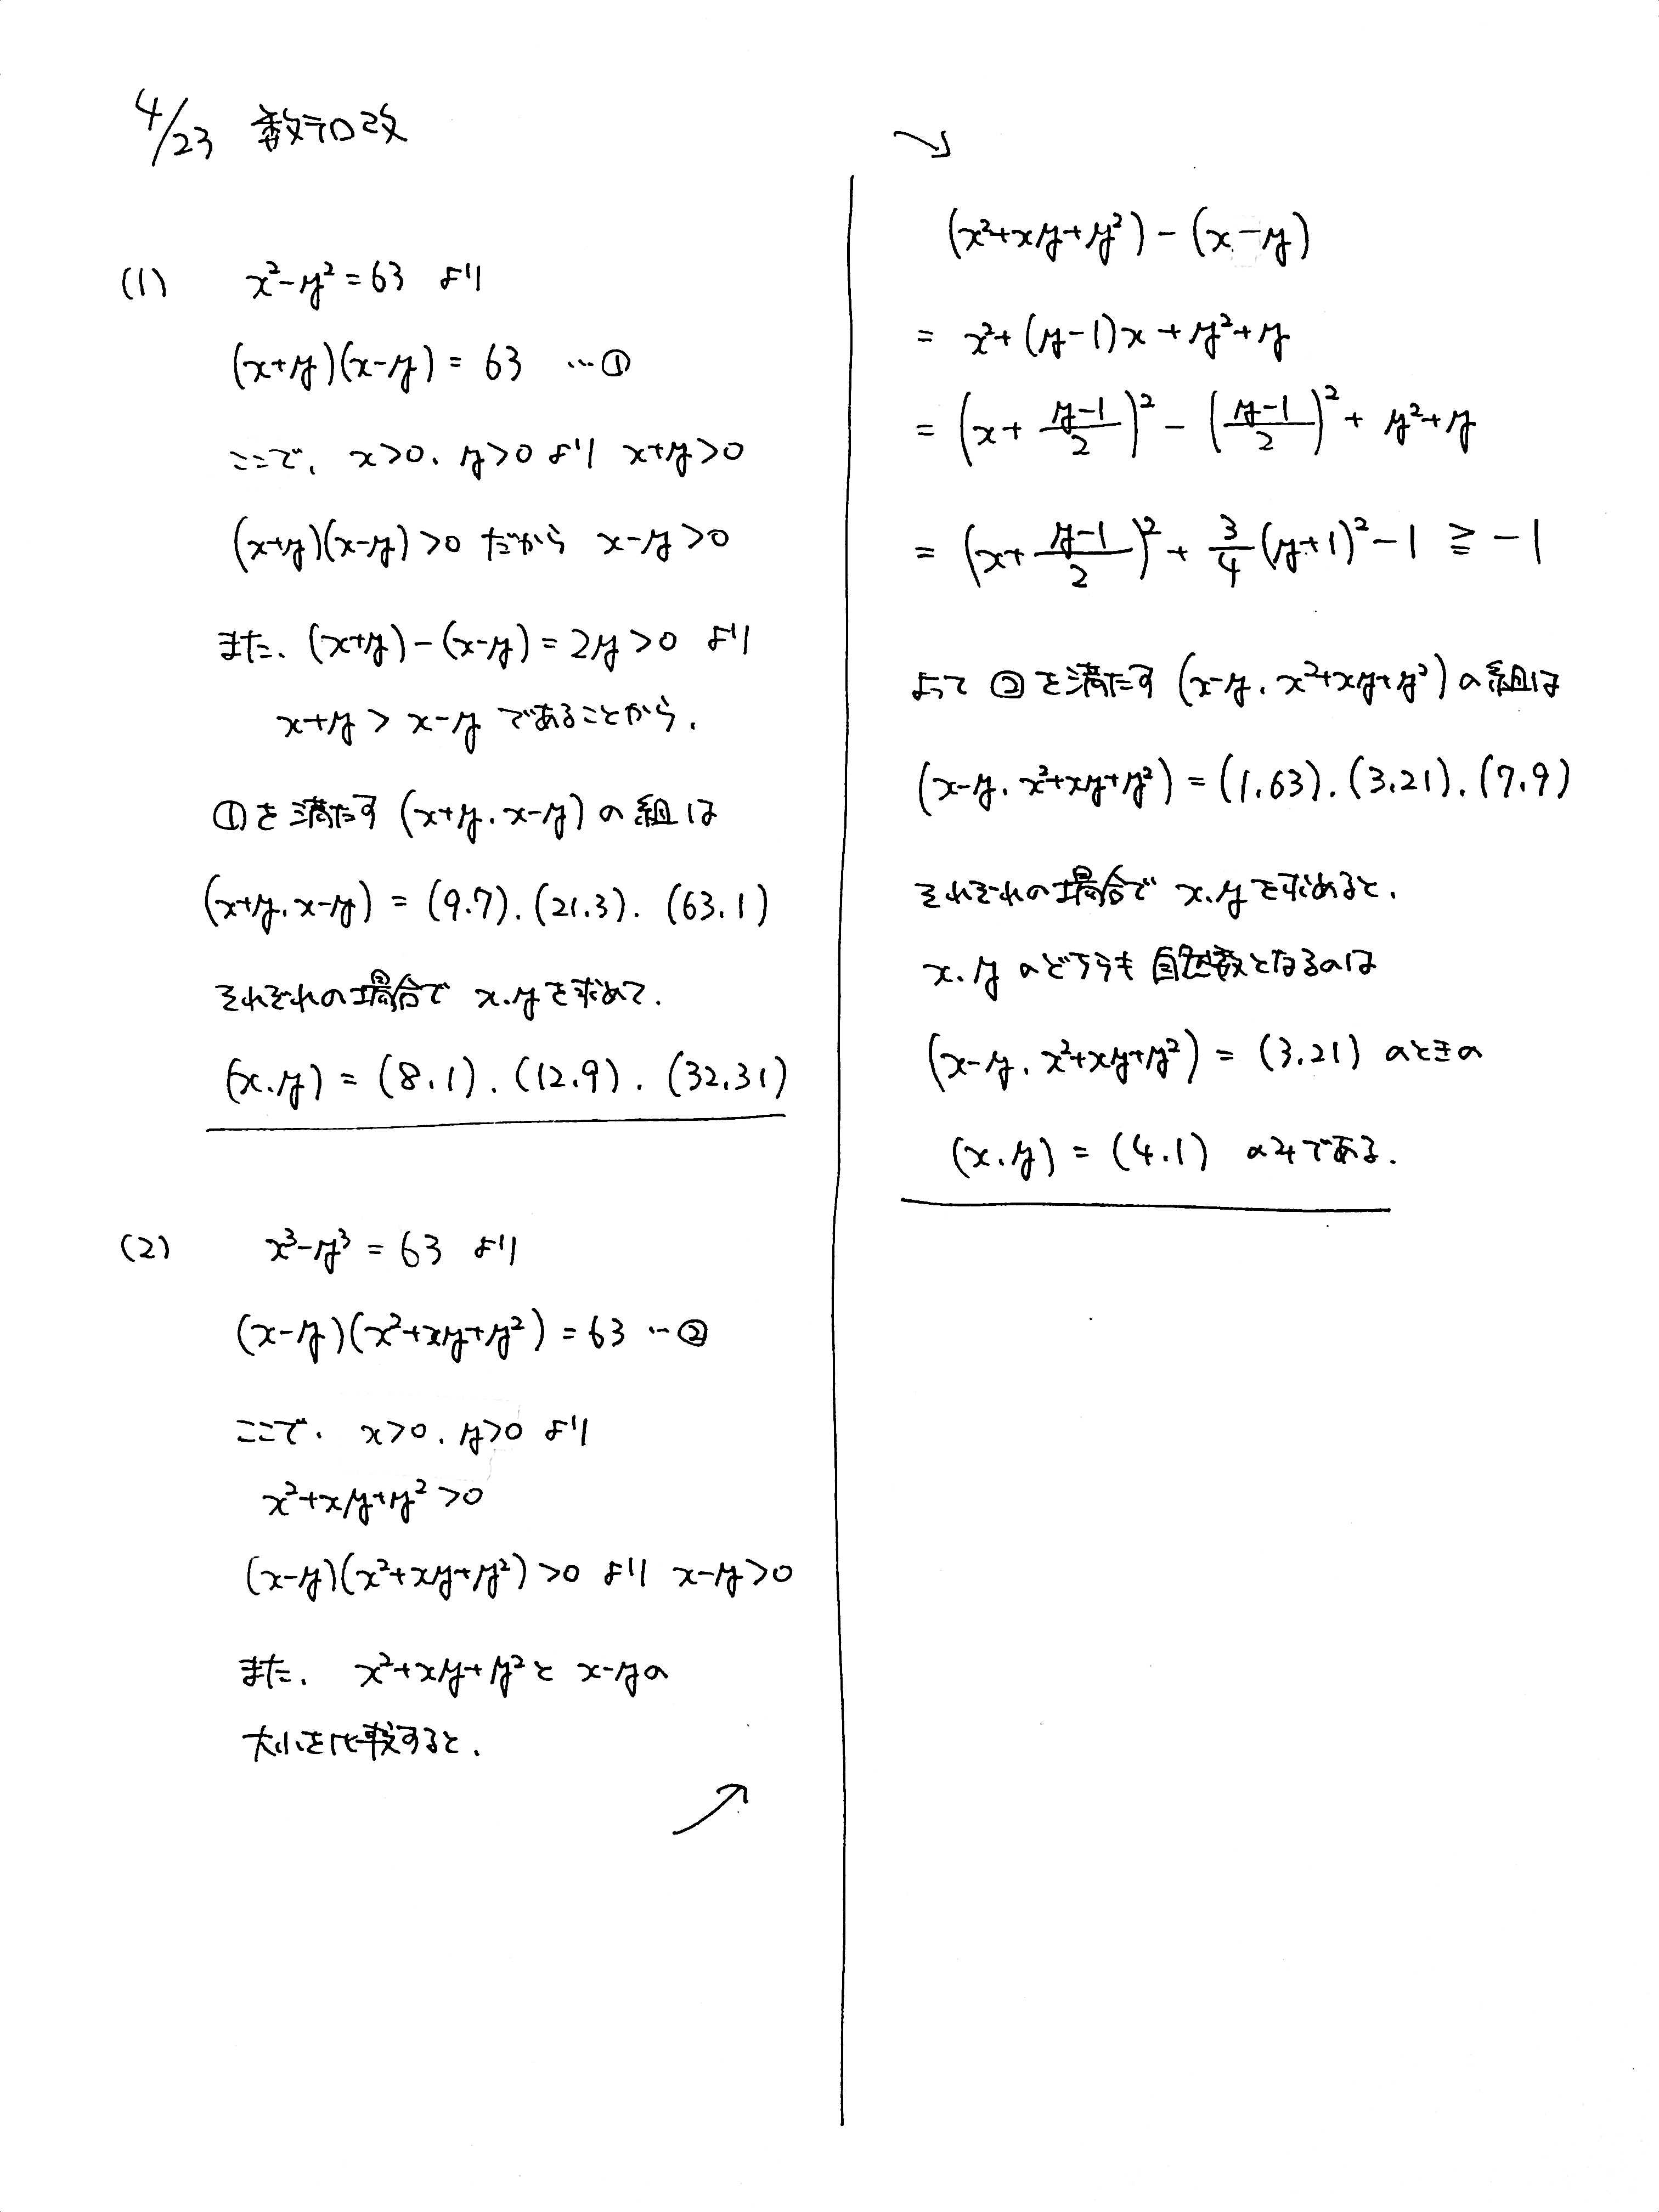 4/23 数テロ改
(1) x²-y²=63 より
(x+y)(x-y)=63 …①
ここで、x>0、y>0 より x+y>0
(x+y)(x-y)>0 だから x-y>0
また、(x+y)-(x-y)=2y>0 より
x+y > x-y であることから、
①を満たす (x+y, x-y) の組は
(x+y, x-y) = (9,7), (21,3), (63,1)
それぞれの場合で x,yを求めて、
(x,y) = (8,1), (12,9), (32,31)
(2) x³-y³=63 より
(x-y)(x²+xy+y²)=63 …②
ここで、x>0、y>0 より
x²+xy+y²>0
(x-y)(x²+xy+y²)>0 より x-y>0
また、x²+xy+y²と x-yの
大小を比較すると、
(x²+xy+y²)-(x-y)
= x²+(y-1)x+y²+y
= (x+(y-1)/2)²-((y-1)/2)²+y²+y
= (x+(y-1)/2)²+3/4(y+1)²-1 ≧ -1
よって②を満たす (x-y, x²+xy+y²)の組は
(x-y, x²+xy+y²) = (1,63), (3,21), (7,9)
それぞれの場合で x,yを求めると、
x,yのどちらも自然数となるのは
(x-y, x²+xy+y²) = (3,21) のときの
(x,y) = (4,1) のみである.